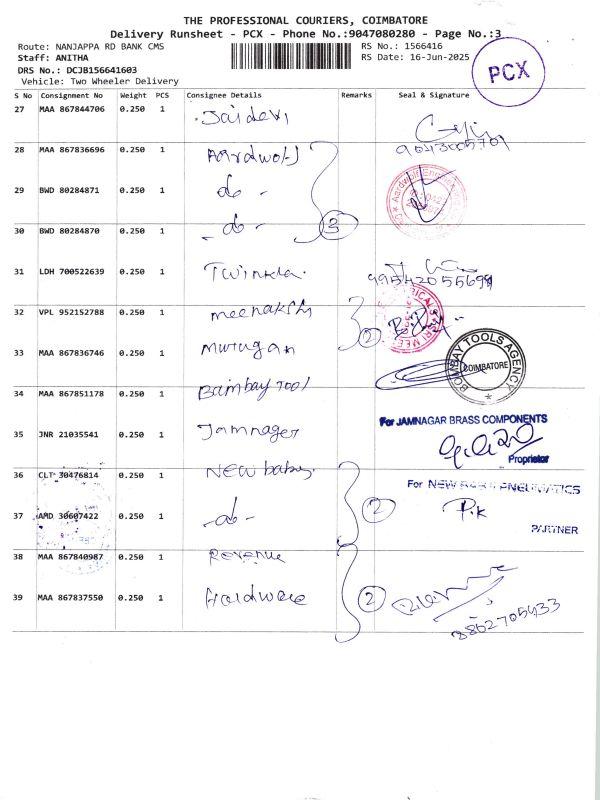 THE PROFESSIONAL COURIERS, COIMBATORE
Delivery Runsheet - PCX - Phone No.:9047080280 - Page No.:3
Route: NANJAPPA RD BANK CMS RS No.: 1566416
Staff: ANITHA RS Date: 16-Jun-2025
DRS No.: DCJB156641603
Vehicle: Two Wheeler Delivery
PCX
S No Consignment No Weight PCS Consignee Details Remarks Seal & Signature
27 MAA 867844706 0.250 1 Jaidevi
28 MAA 867836696 0.250 1 Aardwolf
29 BWD 80284871 0.250 1 -do-
30 BWD 80284870 0.250 1 -do- 3
31 LDH 700522639 0.250 1 Twinkle
32 VPL 952152788 0.250 1 meenakshi
33 MAA 867836746 0.250 1 murugan 2
34 MAA 867851178 0.250 1 Bambay Tool
BOMBAY TOOLS AGENCY
COIMBATORE
35 JNR 21035541 0.250 1 Jamnager
For JAMNAGAR BRASS COMPONENTS
Proprietor
36 CLT 30476814 0.250 1 New baby
For NEW PNEUMATICS
37 AMD 30607422 0.250 1 -do- 2 P.K
PARTNER
38 MAA 867840987 0.250 1 Revenue
39 MAA 867837550 0.250 1 Hardware 2
8862705433